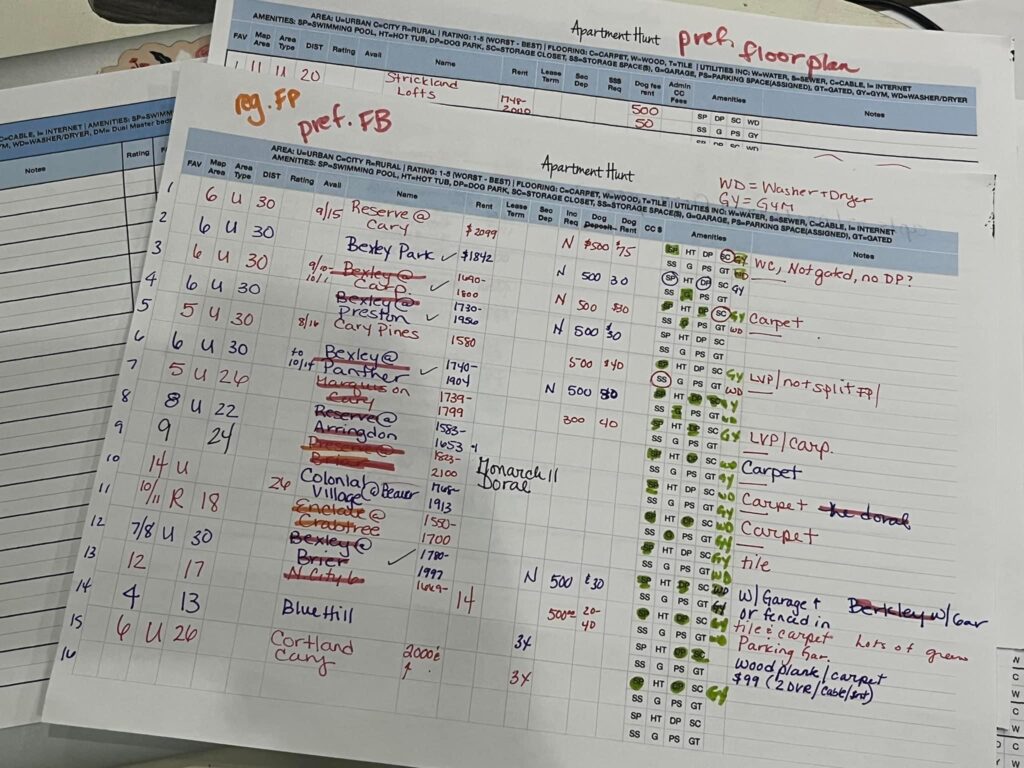 Apartment Hunt pref. floorplan
AREA: U=URBAN C=CITY R=RURAL | RATING: 1-5 (WORST - BEST) | FLOORING: C=CARPET, W=WOOD, T=TILE | UTILITIES INC: W=WATER, S=SEWER, C=CABLE, I= INTERNET
AMENITIES: SP=SWIMMING POOL, HT=HOT TUB, DP=DOG PARK, SC=STORAGE CLOSET, SS=STORAGE SPACE(S), G=GARAGE, PS=PARKING SPACE(ASSIGNED), GT=GATED, GY=GYM, WD=WASHER/DRYER
FAV Map Area Area Type DIST Rating Avail Name Rent Lease Term Sec Dep SSS Req Dog fee rent Admin CC Fees Amenities Notes
1 11 U 20 Strickland Lofts 1748- 500 50 SP DP SC WD
SS G PS GY
C=CABLE, I= INTERNET | AMENITIES: SP=SWIMM
WASHER/DRYER, DM= Dual Master bed
Notes Rating
reg. FP
pref. FB
Apartment Hunt
WD = Washer+Dryer
GY = GYM
AREA: U=URBAN C=CITY R=RURAL | RATING: 1-5 (WORST - BEST) | FLOORING: C=CARPET, W=WOOD, T=TILE | UTILITIES INC: W=WATER, S=SEWER, C=CABLE, I= INTERNET
AMENITIES: SP=SWIMMING POOL, HT=HOT TUB, DP=DOG PARK, SC=STORAGE CLOSET, SS=STORAGE SPACE(S), G=GARAGE, PS=PARKING SPACE(ASSIGNED), GT=GATED
FAV Map Area Area Type DIST Rating Avail Name Rent Lease Term Sec Dep Inc Req Dog Deposit Dog Rent CC $ Amenities Notes
1 6 U 30 9/15 Reserve @ Cary $2099 N $500 $75 SP HT DP SC GY
SS G PS GT WD WC, Not gated, no DP?
2 6 U 30 Bexley Park ✓ $1842 N 500 30 SP HT DP SC GY
SS G PS GT
3 6 U 30 9/10- 10/11 Bexley @ Carp ✓ 1690- 1800 N 500 $30 SP HT DP SC GY
SS G PS GT WD Carpet
4 6 U 30 Bexley @ Preston ✓ 1730- 1956 N 500 $30 SP HT DP SC
SS G PS GT
5 5 U 30 8/16 Cary Pines 1580 500 $40 SP HT DP SC GY
SS G PS GT WD LVP/not split FP/
6 6 U 30 to 10/14 Bexley @ Panther ✓ 1740- 1904 N 500 $30 SP HT DP SC GY
SS G PS GT WD
7 5 U 26 Marquis on Cary 1739- 1799 300 40 SP HT DP SC GY
SS G PS GT LVP/Carp.
8 8 U 22 Reserve @ Arringdon 1583- 1653 SP HT DP SC WD
SS G PS GT GY Carpet
9 9 24 Preserve @ Brier 1823- 2100 Monarch 11 Doral SP HT DP SC WD
SS G PS GT GY Carpet the doral
10 14 U 26 Colonial Village @ Beaver 1768- 1913 SP HT DP SC WD
SS G PS GT GY Carpet
11 10/11 R 18 Enclave @ Crabtree 1550- 1700 SP HT DP SC GY
SS G PS GT WD tile
12 7/8 U 30 Bexley @ Brier ✓ 1780- 1997 N 500 $30 SP HT DP SC WD
SS G PS GT GY W/ Garage + or fenced in Berkley w/ Gar
13 12 17 N City 6 1649- 14 500 20- 40 SP HT DP SC GY
SS G PS GT WD tile & carpet Parking Gar Lots of green
14 4 13 Blue Hill 3x SP HT DP SC
SS G PS GT Wood plank/carpet $99 (2DVR/Cable/Int)
15 6 U 26 Cortland Cary 2000 3x SP HT DP SC GY
SS G PS GT
16 SP HT DP SC
SS G PS GT